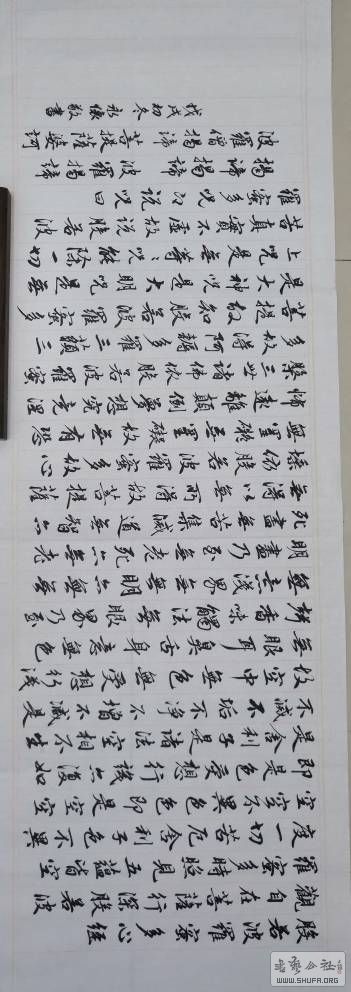 般若波羅蜜多心經
觀自在菩薩行深般若波
羅蜜多時照見五蘊皆空
度一切苦厄舍利子色不異
空空不異色色即是空空
即是色受想行識亦復如
是舍利子是諸法空相不生
不滅不垢不淨不增不減是
故空中無色無受想行識
無眼耳鼻舌身意無色
聲香味觸法無眼界乃至
無意識界無無明亦無無
明盡乃至無老死亦無老
死盡無苦集滅道無智亦
無得以無所得故菩提薩
埵依般若波羅蜜多故心
無罣礙無罣礙故無有恐
怖遠離顛倒夢想究竟涅
槃三世諸佛依般若波羅蜜
多故得阿耨多羅三藐三
菩提故知般若波羅蜜多
是大神咒是大明咒是無
上咒是無等等咒能除一切
苦真實不虛故說般若波
羅蜜多咒即說咒曰
揭諦揭諦波羅揭諦
波羅僧揭諦菩提薩婆訶
戊戌初冬永敬書
書法公社
WWW.SHUFA.ORG